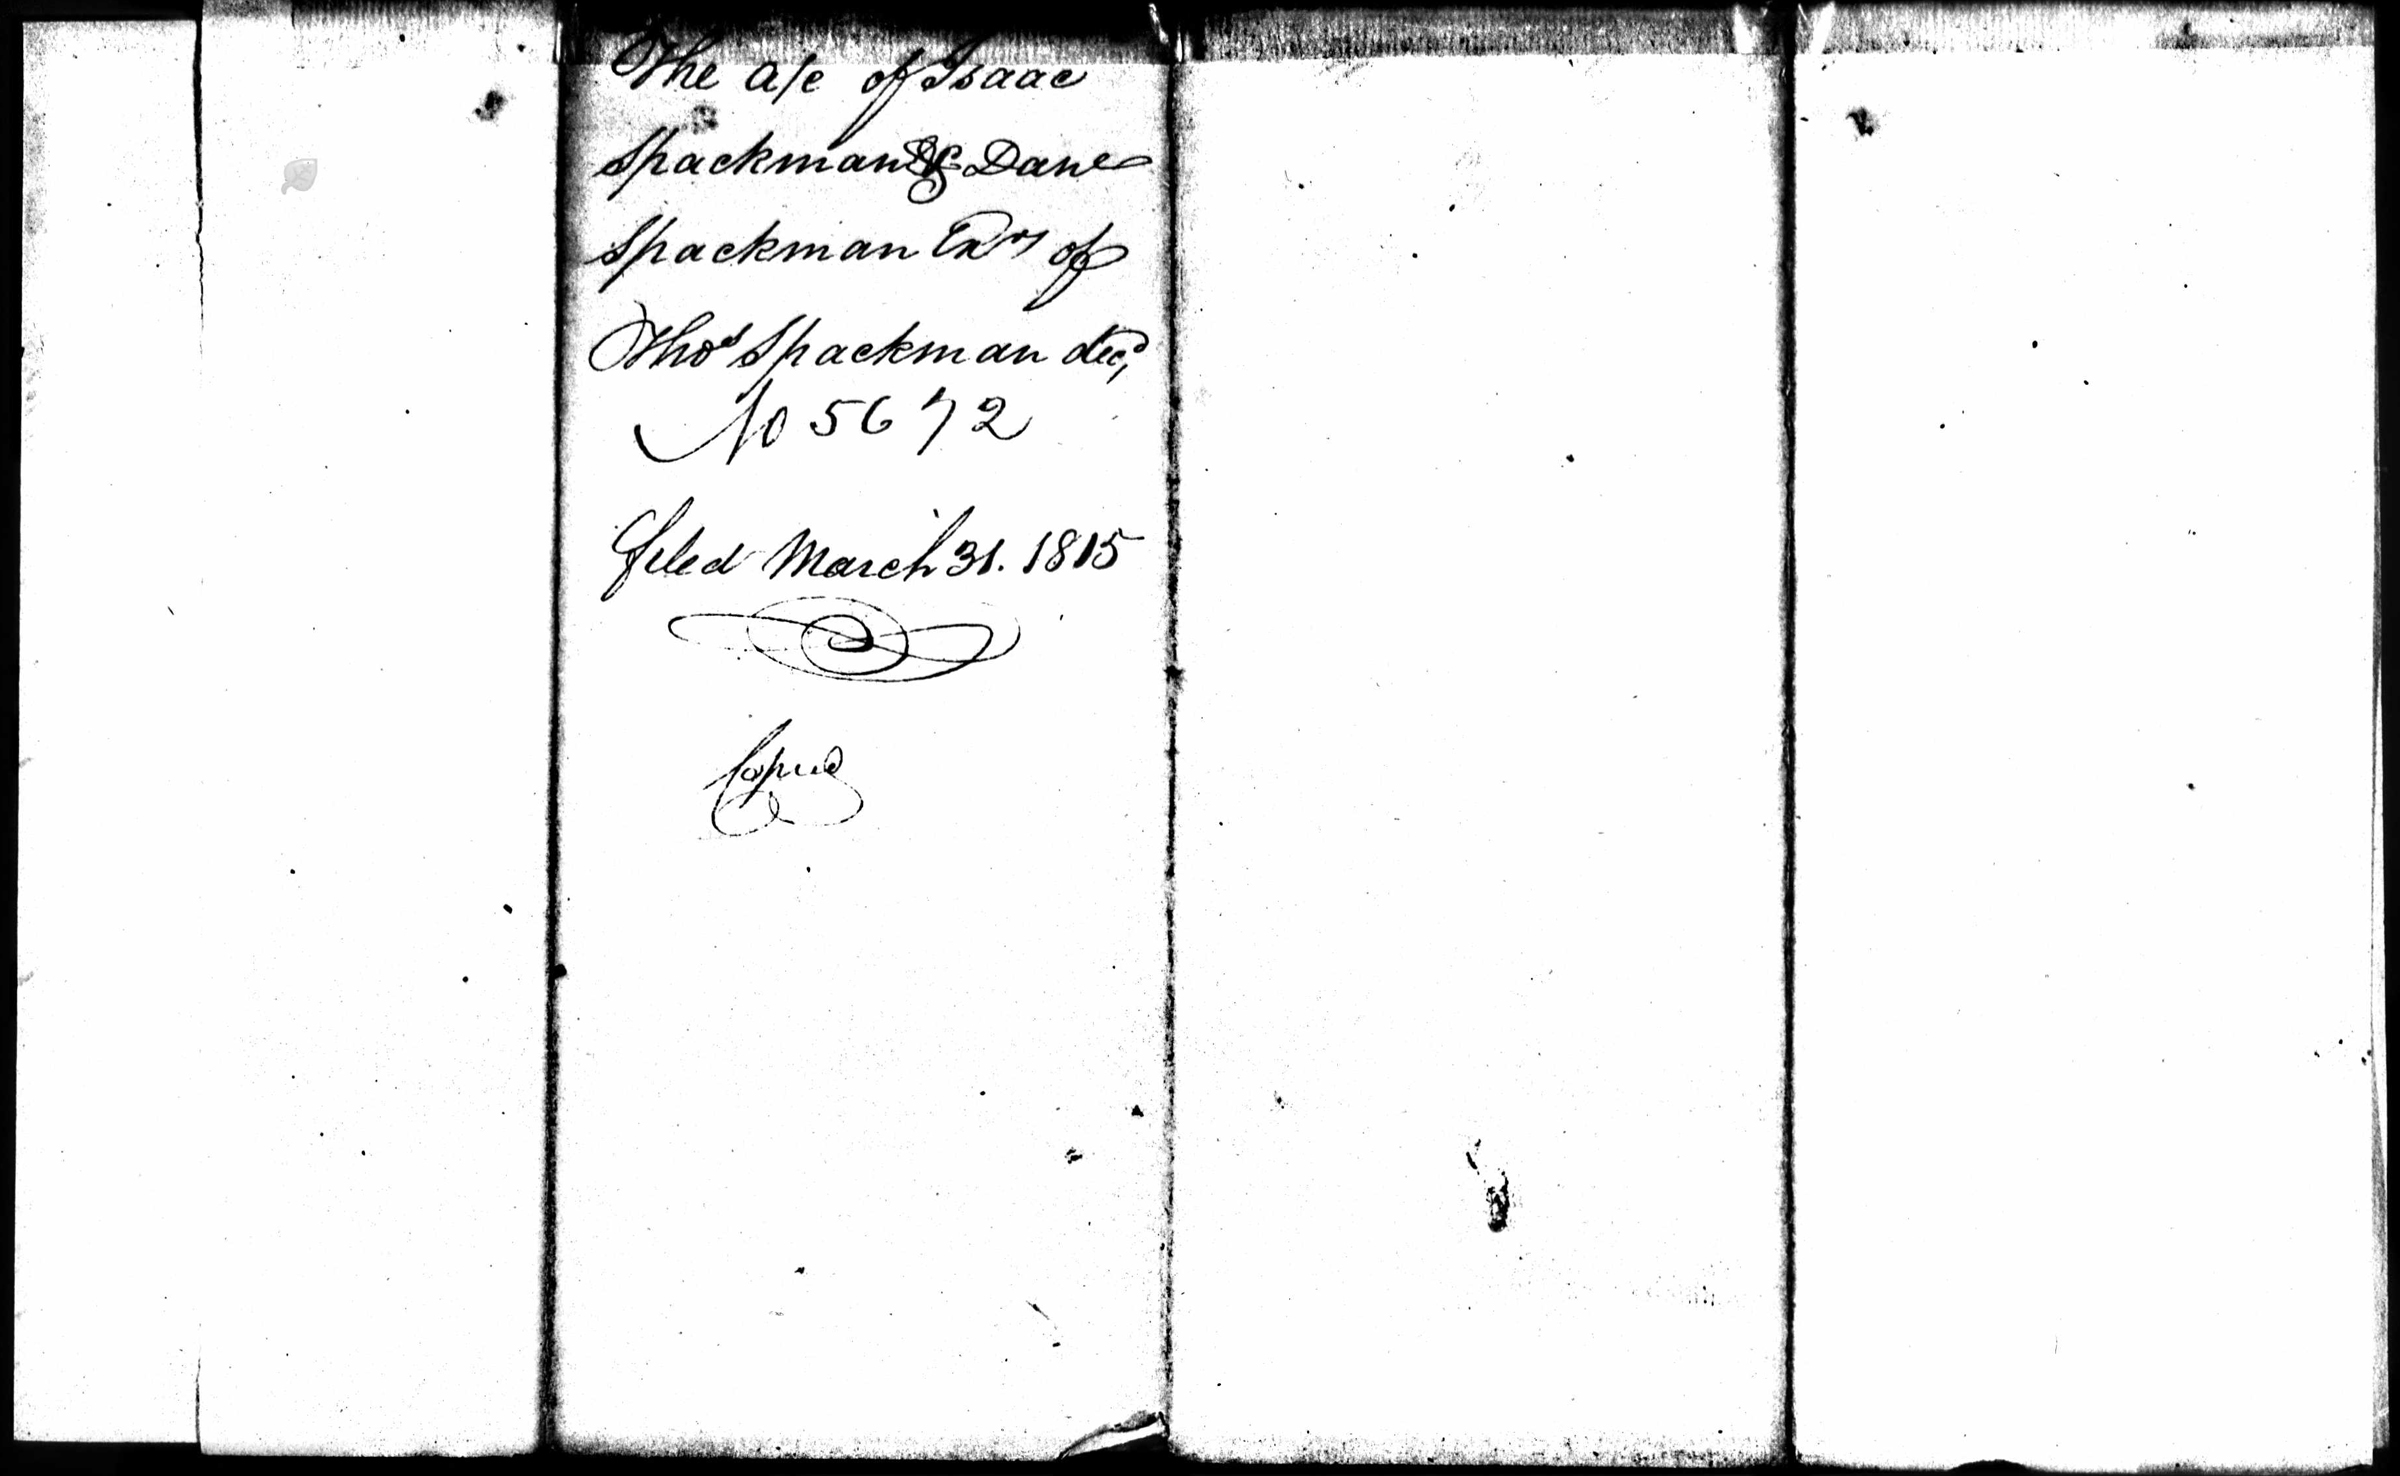 The a/c of Isaac
Spackman & Dane
Spackman Exrs of
Thos Spackman decd
No 5672
filed March 31. 1815
Copied